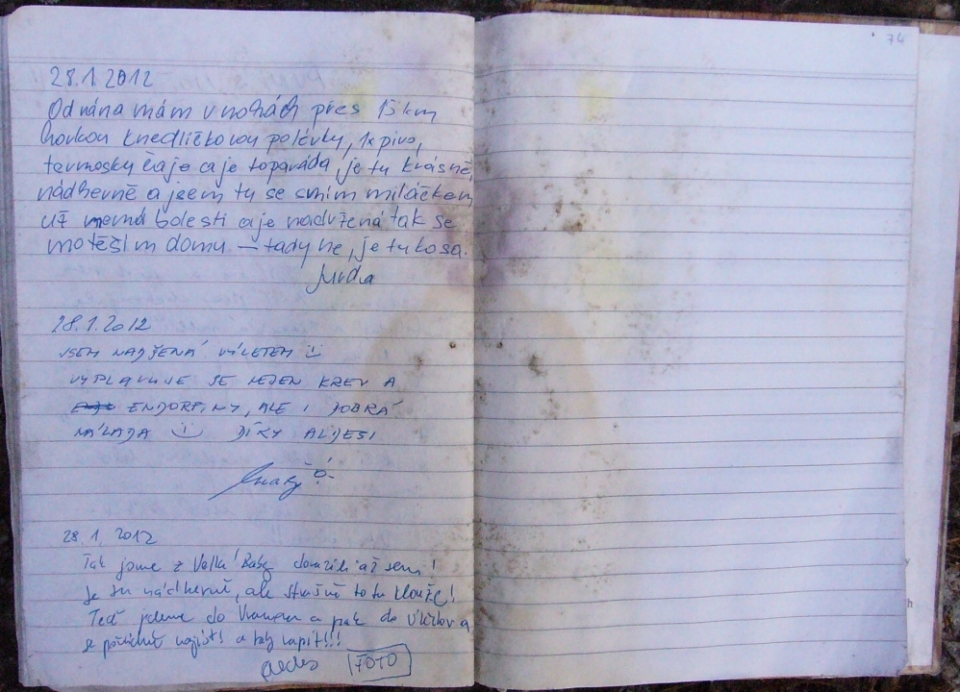 74
28.1.2012
Od rána mám v nohách přes 15 km
horkou knedlíčkovou polévky, 1x pivo,
termosky čaje a je to paráda je tu krásně,
nádherně a jsem tu se svým miláčkem
už nemá bolesti a je nadržená tak se
motěším domu – tady ne, je tu kosa.
28.1.2012
JSEM NADŠENÁ VÝLETEM
VYPLAVUJE SE NEJEN KREV A
ENDORFINY, ALE I DOBRÁ
NÁLADA DÍKY ALDESI
28.1.2012
Tak jsme z Velké Baby dorazili až sem!
Je tu nádherně, ale strašně to tu klouže!
Teď jdeme do a pak do
se pořádně najíst! a taky napít!!!
FOTO